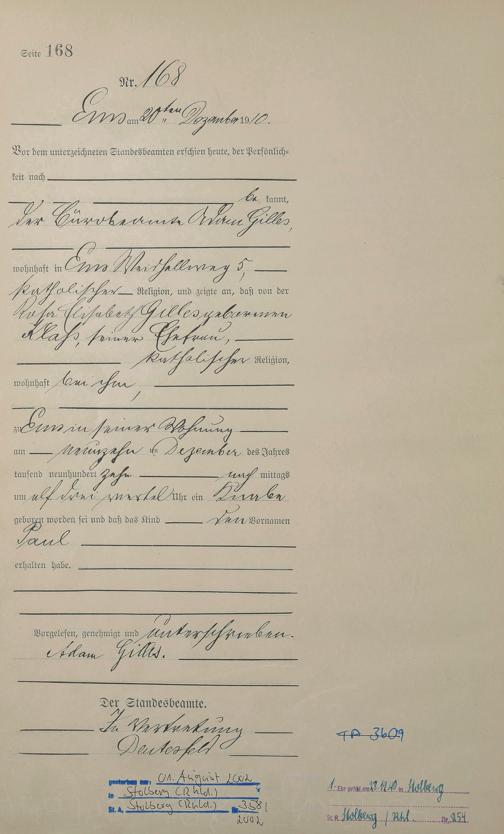 Seite 168
Nr. 168
Ems am 20ten Dezember 1910.
Vor dem unterzeichneten Standesbeamten erschien heute, der Persönlich-
keit nach
be kannt,
der Bürobeamte Adam Gilles,
wohnhaft in Ems 5,
katholischer Religion, und zeigte an, daß von der
Rosa Elisabeth Gilles geborenen
Klahs, seiner Ehefrau,
katholischer Religion,
wohnhaft bei ihm,
zu Ems in seiner Wohnung
am neunzehn ten Dezember des Jahres
tausend neunhundert zehn nach mittags
um elf drei viertel Uhr ein Knabe
geboren worden sei und daß das Kind den Vornamen
Paul
erhalten habe.
Vorgelesen, genehmigt und unterschrieben.
Adam Gilles.
Der Standesbeamte.
In Vertretung
gestorben am: 01. August 2002
in Stolberg (Rhld.)
St. A. Stolberg (Rhld.) Nr. 358/
2002
TA 3609
1. Eheschl. am in Stolberg
St. A. Stolberg / Rhl. Nr. 254